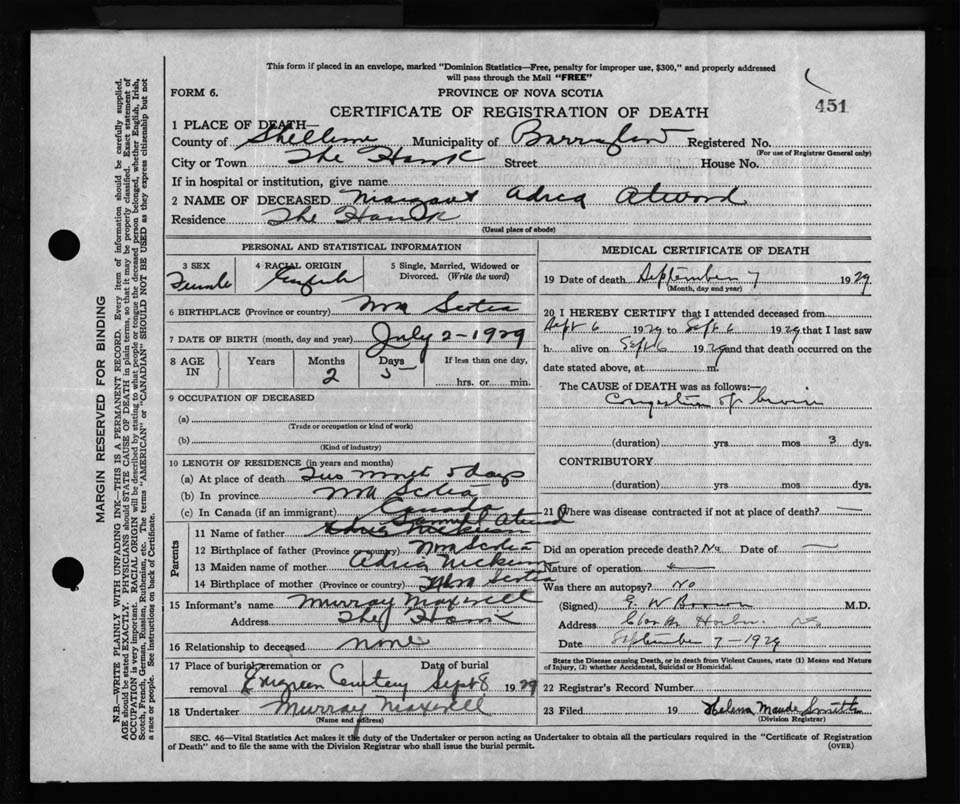 This form if placed in an envelope, marked "Dominion Statistics—Free, penalty for improper use, $300," and properly addressed
will pass through the Mail "FREE"
FORM 6.
PROVINCE OF NOVA SCOTIA
451
CERTIFICATE OF REGISTRATION OF DEATH
1 PLACE OF DEATH—
County of Shelburne Municipality of Barrington Registered No.
(For use of Registrar General only)
City or Town The Hawk Street House No.
If in hospital or institution, give name
2 NAME OF DECEASED Margaret Adria Atwood
Residence The Hawk
(Usual place of abode)
PERSONAL AND STATISTICAL INFORMATION
3 SEX Female
4 RACIAL ORIGIN English
5 Single, Married, Widowed or
Divorced. (Write the word)
6 BIRTHPLACE (Province or country) Nova Scotia
7 DATE OF BIRTH (month, day and year) July 2-1929
8 AGE IN Years Months 2 Days 5 If less than one day,
hrs. or min.
9 OCCUPATION OF DECEASED
(a)
(Trade or occupation or kind of work)
(b)
(Kind of industry)
10 LENGTH OF RESIDENCE (in years and months)
(a) At place of death Two month 5 days
(b) In province Nova Scotia
(c) In Canada (if an immigrant) Canada
Parents
Samuel Atwood
11 Name of father
12 Birthplace of father (Province or country) Nova Scotia
13 Maiden name of mother Adria
14 Birthplace of mother (Province or country) Nova Scotia
15 Informant's name Murray Maxwell
Address The Hawk
16 Relationship to deceased none
17 Place of burial cremation or Date of burial
removal Evergreen Cemetery Sept 8 1929
18 Undertaker Murray Maxwell
(Name and address)
MEDICAL CERTIFICATE OF DEATH
19 Date of death September 7 1929
(Month, day and year)
20 I HEREBY CERTIFY that I attended deceased from
Sept 6 1929 to Sept 6 1929 that I last saw
h alive on Sept 6 1929 and that death occurred on the
date stated above, at m.
The CAUSE of DEATH was as follows:—
Congestion of brain
(duration) yrs mos 3 dys.
CONTRIBUTORY
(duration) yrs mos dys.
21 Where was disease contracted if not at place of death? —
Did an operation precede death? No Date of —
Nature of operation
Was there an autopsy? No
(Signed) E. W Brown M.D.
Address Clarks Harbor N.S.
Date September 7-1929
State the Disease causing Death, or in death from Violent Causes, state (1) Means and Nature
of Injury, (2) whether Accidental, Suicidal or Homicidal.
22 Registrar's Record Number
23 Filed 19 Helena Maude Smith
(Division Registrar)
SEC. 46—Vital Statistics Act makes it the duty of the Undertaker or person acting as Undertaker to obtain all the particulars required in the "Certificate of Registration
of Death" and to file the same with the Division Registrar who shall issue the burial permit.
(OVER)
MARGIN RESERVED FOR BINDING
N.B—WRITE PLAINLY WITH UNFADING INK—THIS IS A PERMANENT RECORD. Every item of information should be carefully supplied.
AGE should be stated EXACTLY. PHYSICIANS should STATE CAUSE OF DEATH in plain terms, so that it may be properly classified. Exact statement of
OCCUPATION is very important. RACIAL ORIGIN will be described by stating to what people or tongue the deceased person belonged, whether English, Irish,
Scotch, French, German, Russian, Ruthenian, etc. The terms "AMERICAN" or "CANADIAN" SHOULD NOT BE USED as they express citizenship but not
a race or people. See instructions on back of Certificate.